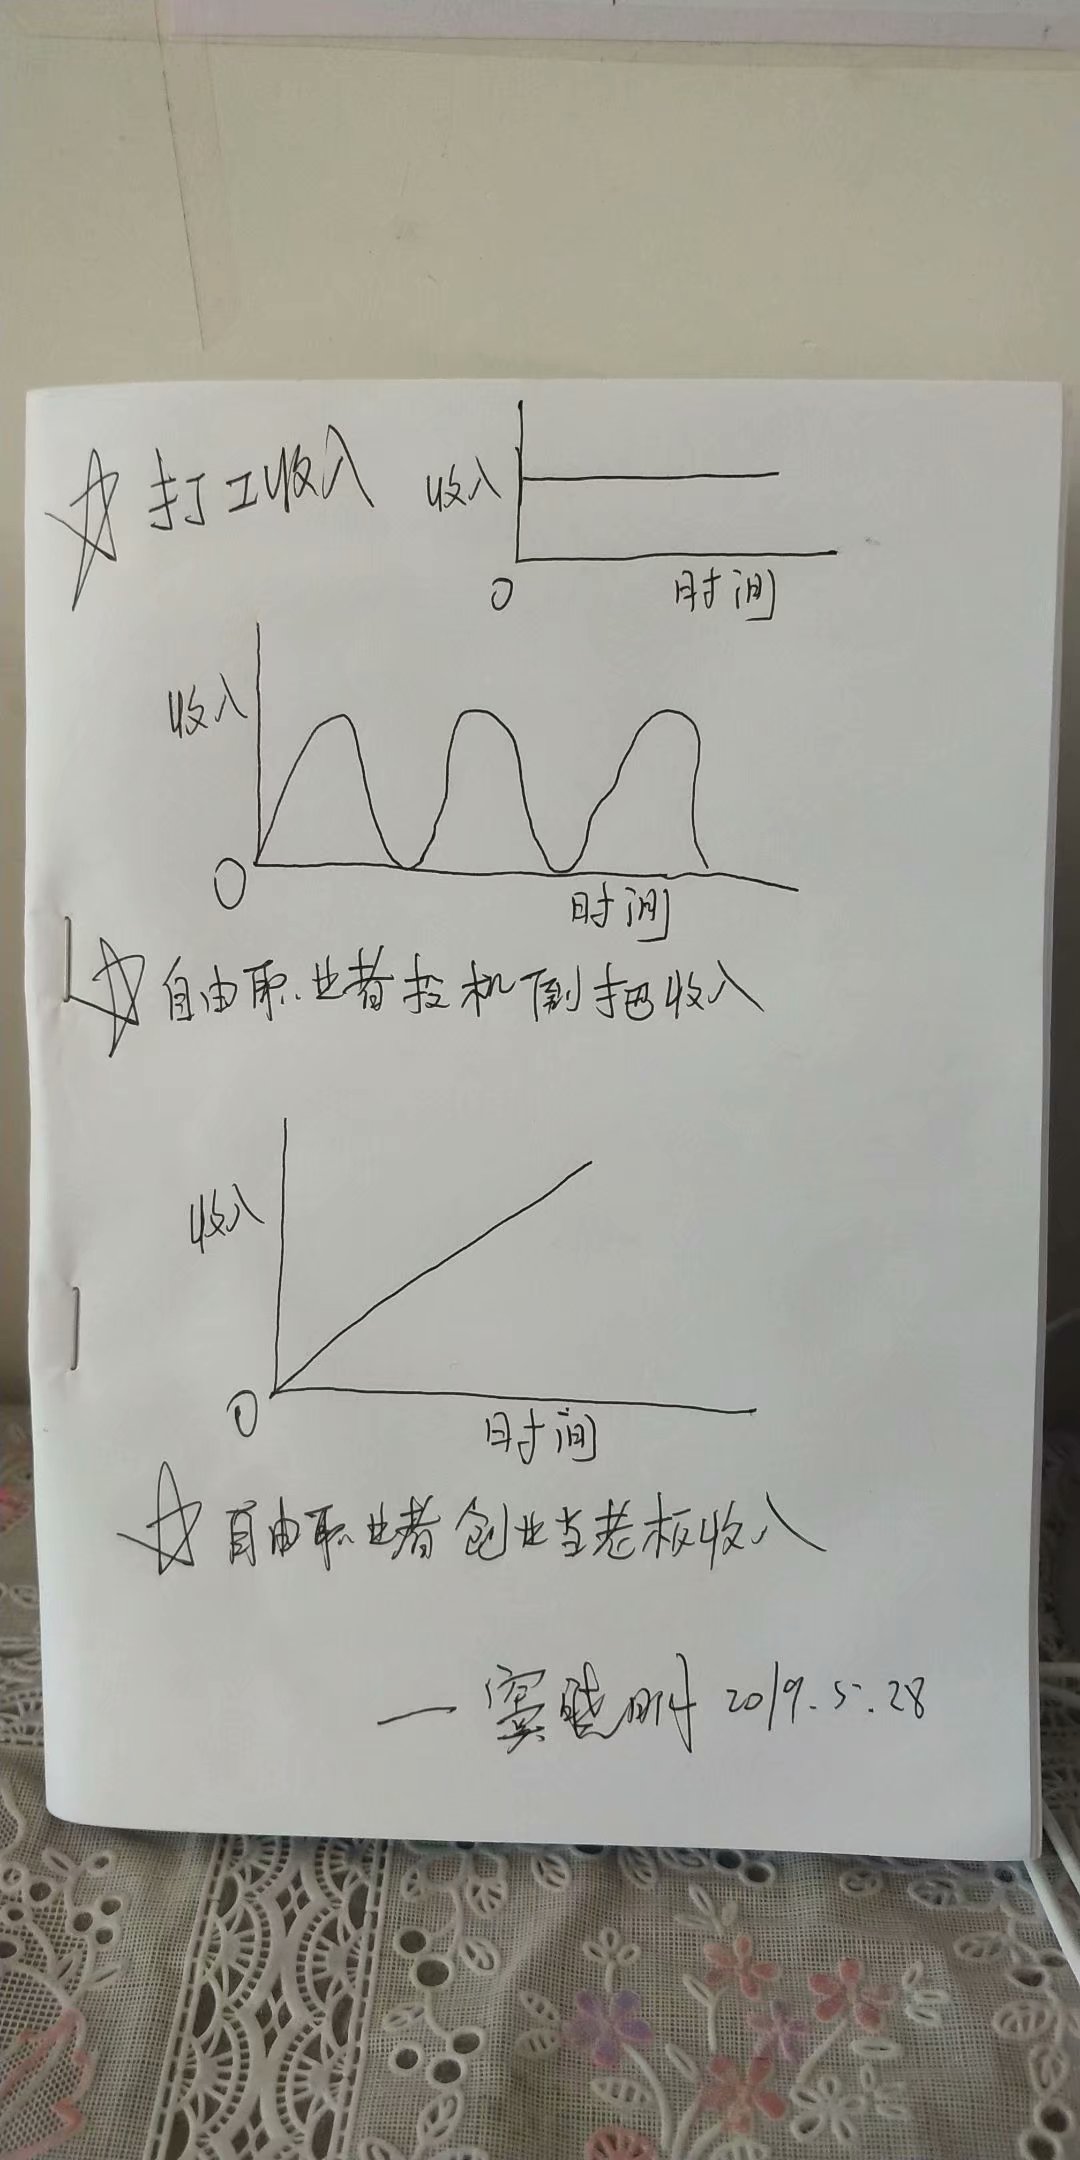 打工收入
收入
0
时间
收入
0
时间
自由职业者投机倒把收入
收入
0
时间
自由职业者创业当老板收入
—窦晓明 2019.5.28